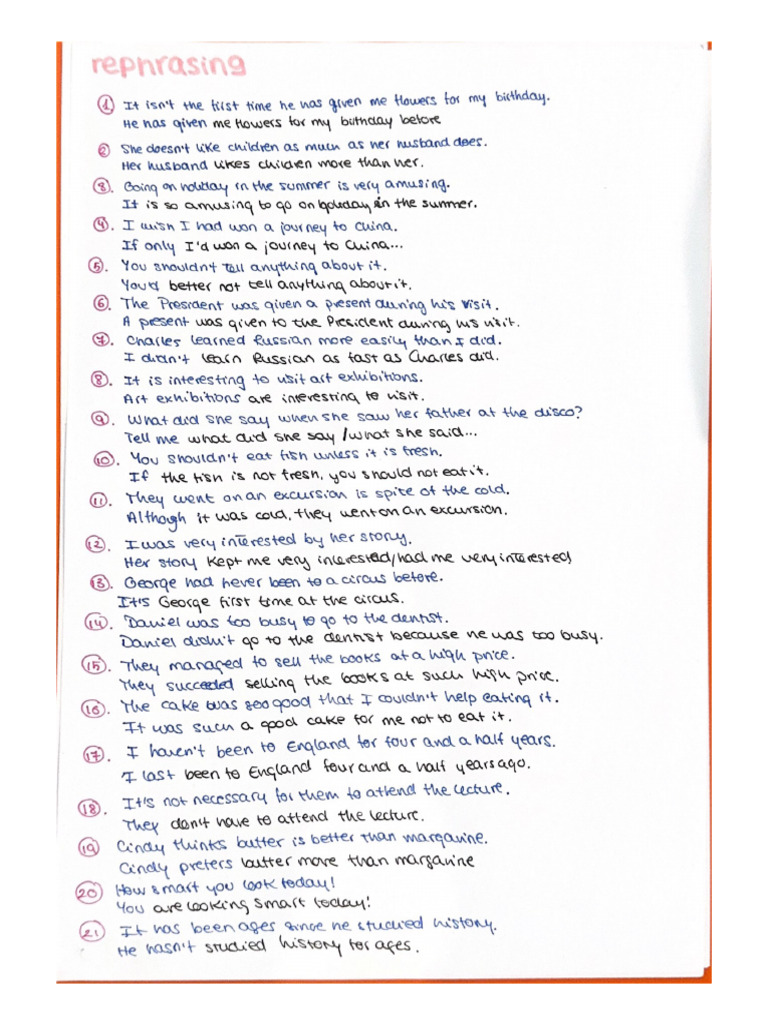 rephrasing
1 It isn't the first time he has given me flowers for my birthday.
He has given me flowers for my birthday before
2 She doesn't like children as much as her husband does.
Her husband likes children more than her.
3. Going on holiday in the summer is very amusing.
It is so amusing to go on holiday in the summer.
4. I wish I had won a journey to China.
If only I'd won a journey to China...
5. You shouldn't tell anything about it.
You'd better not tell anything about it.
6. The President was given a present during his visit.
A present was given to the President during his visit.
7. Charles learned Russian more easily than I did.
I didn't learn Russian as fast as Charles did.
8. It is interesting to visit art exhibitions.
Art exhibitions are interesting to visit.
9. What did she say when she saw her father at the disco?
Tell me what did she say / what she said...
10. You shouldn't eat fish unless it is fresh.
If the fish is not fresh, you should not eat it.
11. They went on an excursion is spite of the cold.
Although it was cold, they went on an excursion.
12. I was very interested by her story.
Her story kept me very interested/had me very interested
13. George had never been to a circus before.
It's George first time at the circus.
14. Daniel was too busy to go to the dentist.
Daniel didn't go to the dentist because he was too busy.
15. They managed to sell the books at a high price.
They succeeded selling the books at such high price.
16. The cake was soo good that I couldn't help eating it.
It was such a good cake for me not to eat it.
17. I haven't been to England for four and a half years.
I last been to England four and a half years ago.
18. It's not necessary for them to attend the lecture.
They don't have to attend the lecture.
19 Cindy thinks butter is better than margarine.
Cindy prefers butter more than margarine
20 How smart you look today!
You are looking smart today!
21. It has been ages since he studied history.
He hasn't studied history for ages.